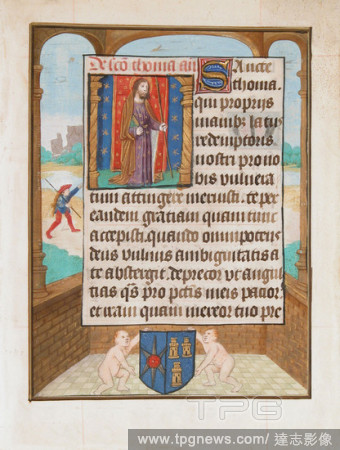 De sco thoma an
Sancte
thoma.
qui proprijs
manib; latus
redemptoris
nostri pro no
bis vulnera
tum attingere meruisti. te per
eandem gratiam quam tunc
accepisti. quando omnipotens
deus vulnus ambiguitatis a
te abstergit. deprecor ut angu
stias qs pro pctis meis patior.
et iram quam mereor tuo pre
TPG
www.tpgnews.com/ 達志影像